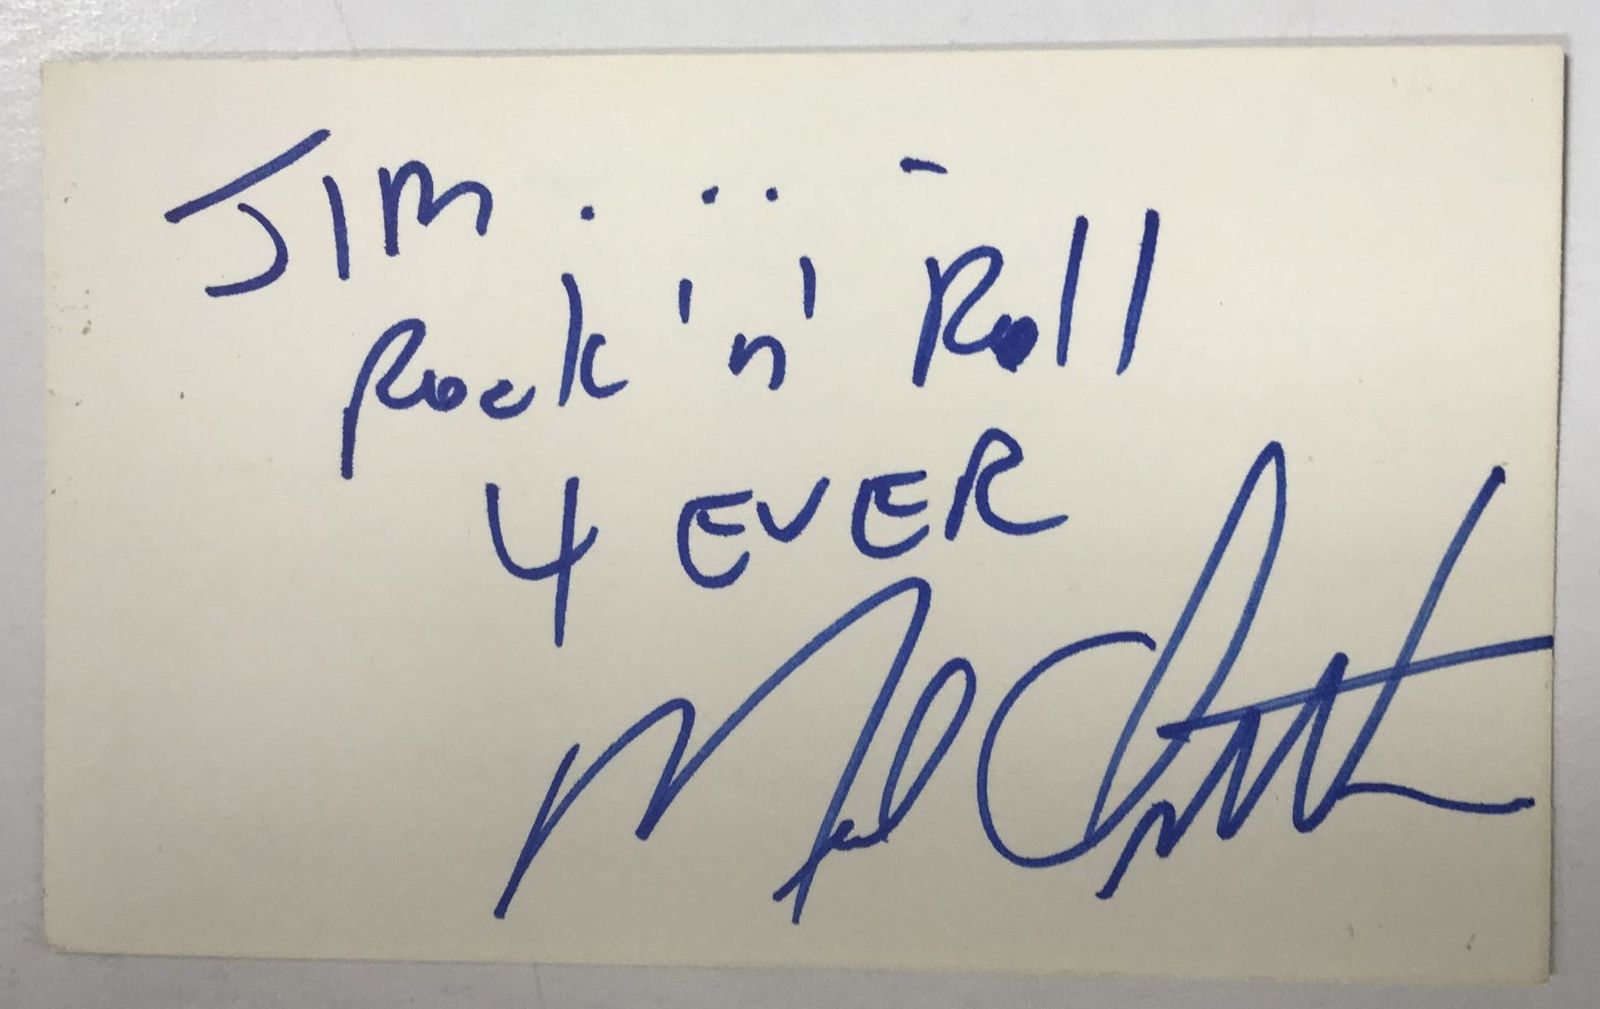 JIM . . . -
Rock 'n' Roll
4 EVER